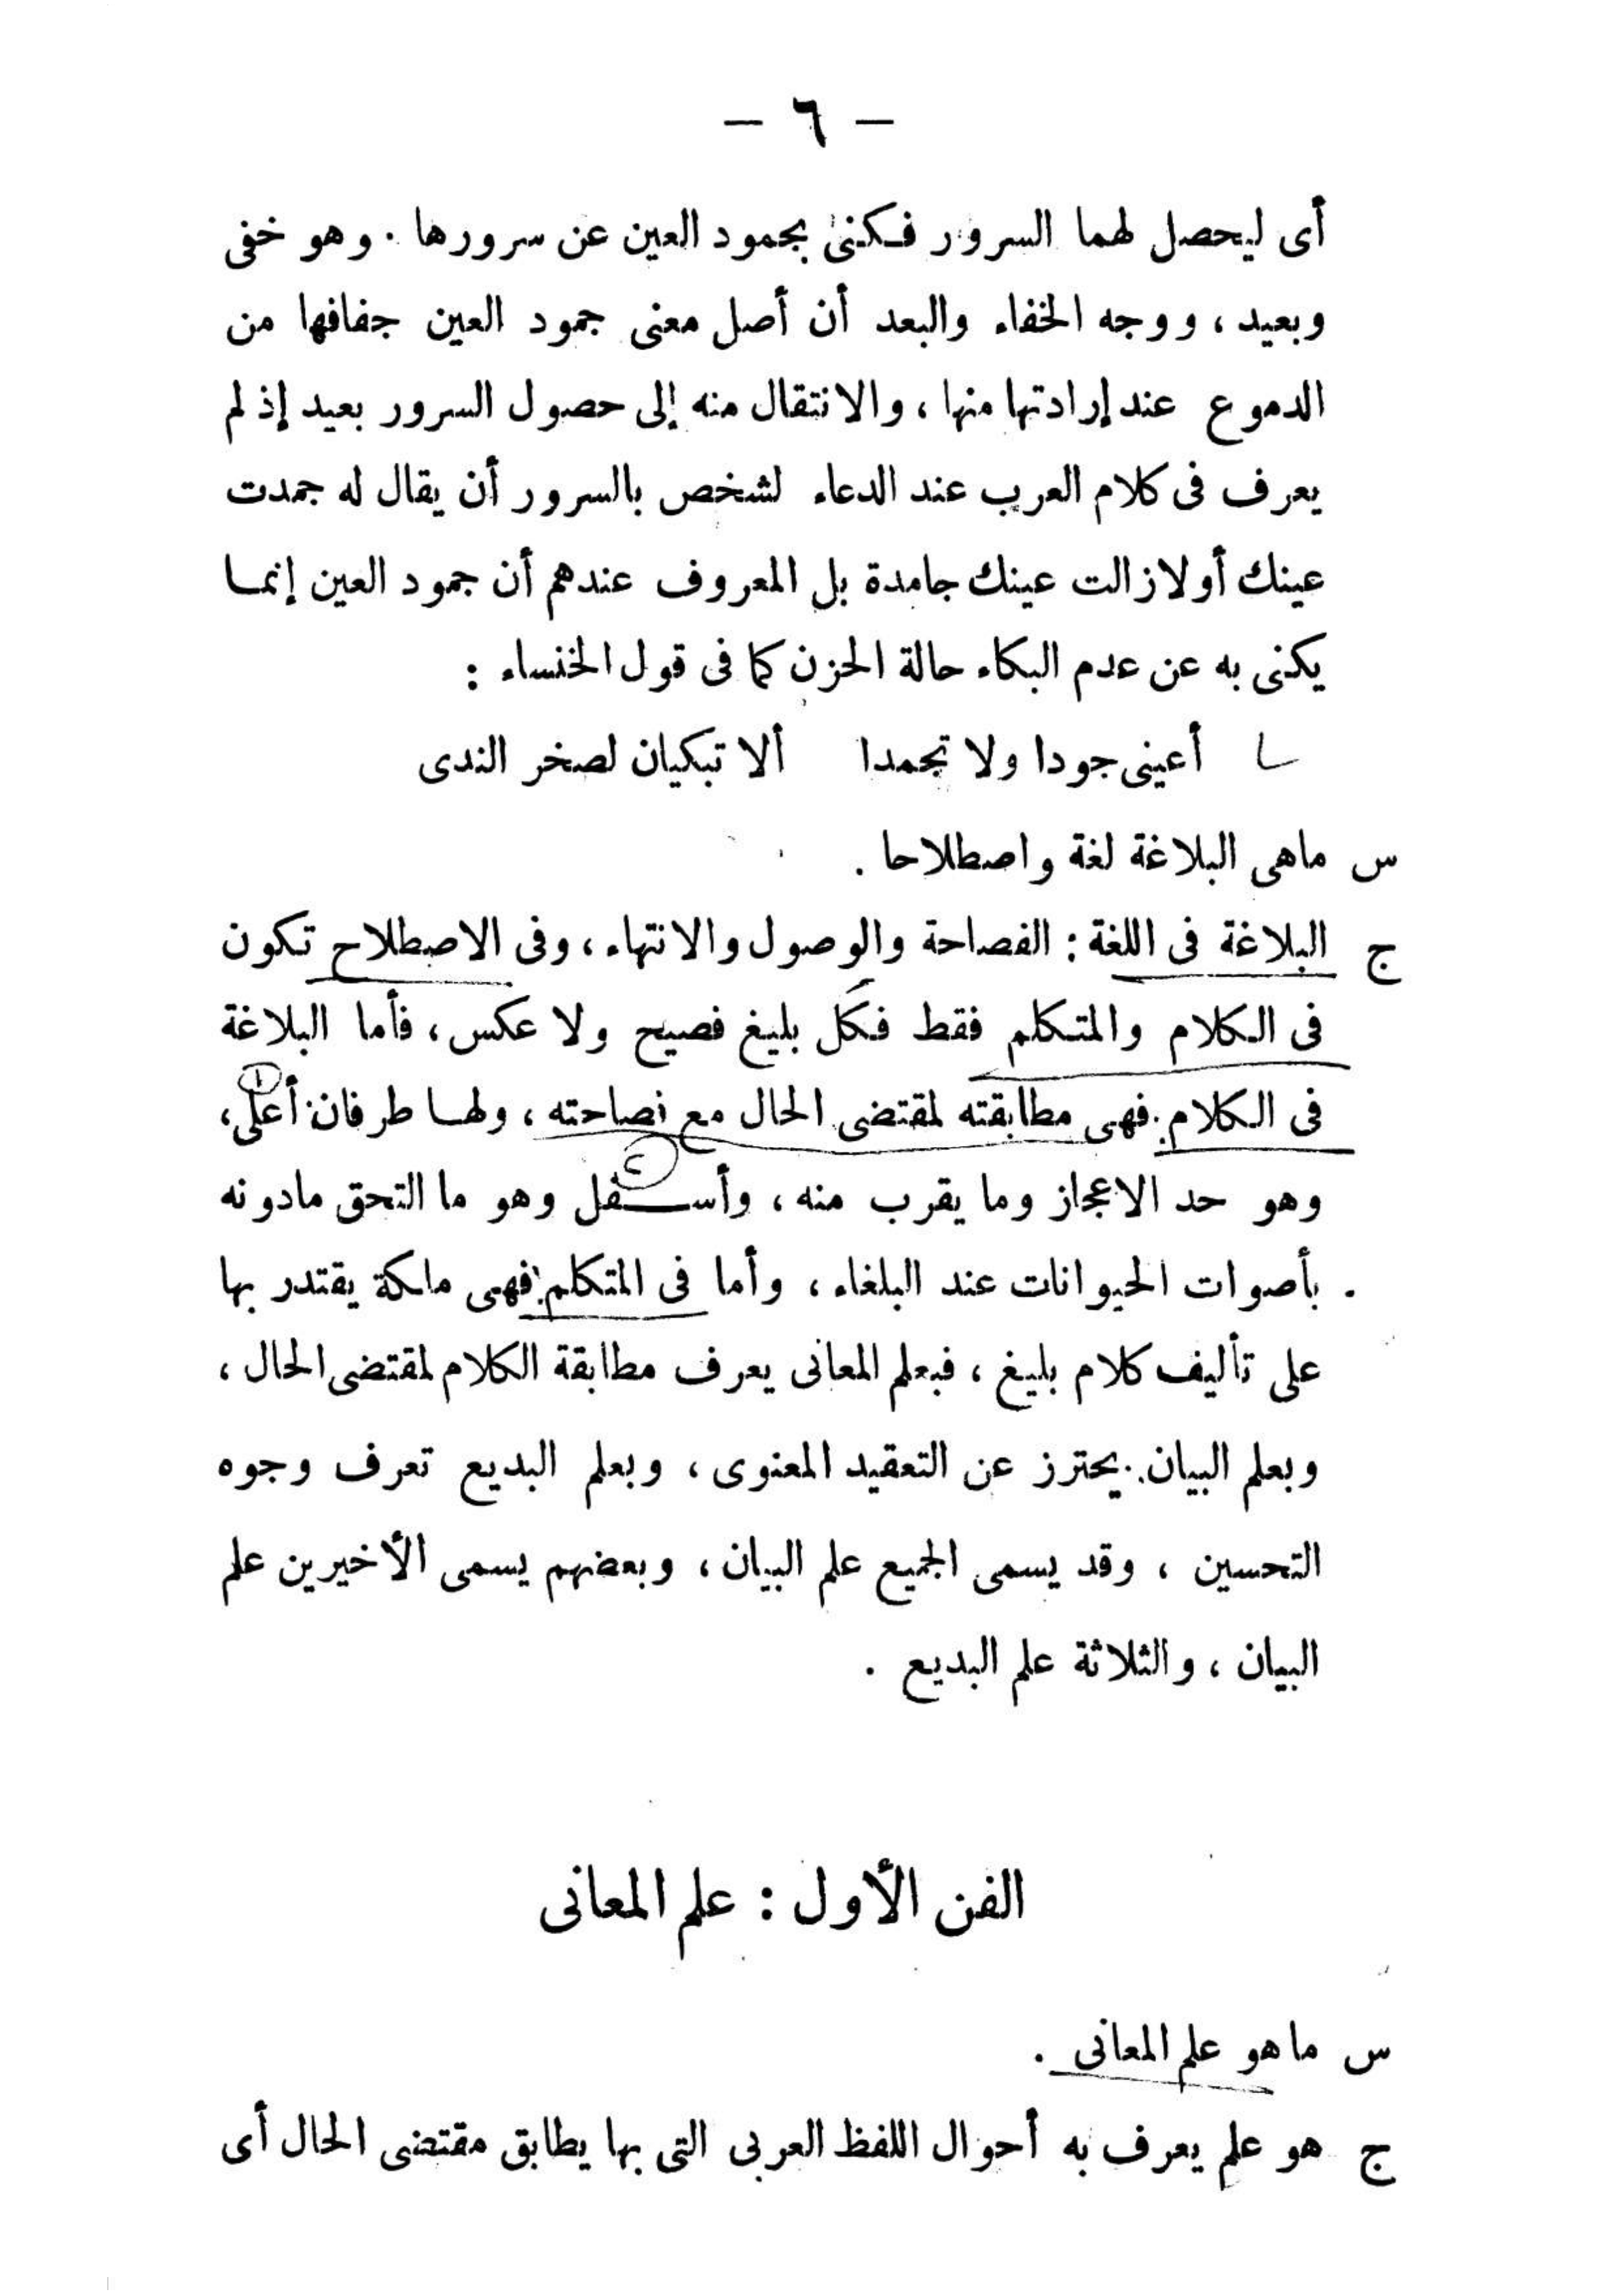 — ٦ —
أى ليحصل لهما السرور فكنى بجمود العين عن سرورها . وهو خفى
وبعيد ، ووجه الخفاء والبعد أن أصل معنى جمود العين جفافها من
الدموع عند إرادتها منها ، والانتقال منه إلى حصول السرور بعيد إذ لم
يعرف فى كلام العرب عند الدعاء لشخص بالسرور أن يقال له جمدت
عينك أو لا زالت عينك جامدة بل المعروف عندهم أن جمود العين إنما
يكنى به عن عدم البكاء حالة الحزن كما فى قول الخنساء :
أعينى جودا ولا تجمدا ألا تبكيان لصخر الندى
س ماهى البلاغة لغة واصطلاحا .
ج البلاغة فى اللغة : الفصاحة والوصول والانتهاء ، وفى الاصطلاح تكون
فى الكلام والمتكلم فقط فكل بليغ فصيح ولا عكس ، فأما البلاغة
فى الكلام فهى مطابقته لمقتضى الحال مع فصاحته ، ولها طرفان أعلى ، ١
وهو حد الاعجاز وما يقرب منه ، وأسفل وهو ما التحق مادونه ٢
بأصوات الحيوانات عند البلغاء ، وأما فى المتكلم فهى ملكة يقتدر بها
على تأليف كلام بليغ ، فبعلم المعانى يعرف مطابقة الكلام لمقتضى الحال ،
وبعلم البيان يحترز عن التعقيد المعنوى ، وبعلم البديع تعرف وجوه
التحسين ، وقد يسمى الجميع علم البيان ، وبعضهم يسمى الأخيرين علم
البيان ، والثلاثة علم البديع .
الفن الأول : علم المعانى
س ما هو علم المعانى .
ج هو علم يعرف به أحوال اللفظ العربى التى بها يطابق مقتضى الحال أى